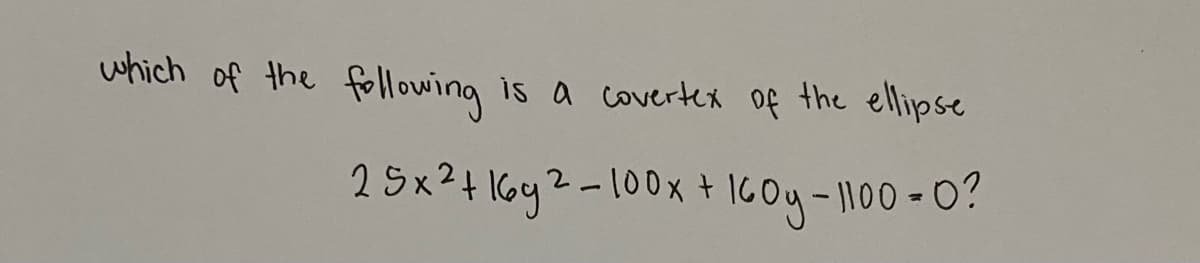 which of the following is a covertex of the ellipse
25x²+16y²-100x+160y-1100=0?